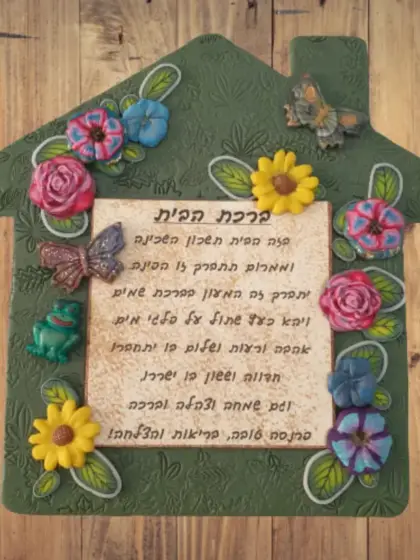 ברכת הבית
בזה הבית תשכון השכינה
וממרום תתברך זו הפינה
יתברך זה המעון בברכת שמים
ויהא כעץ שתול על פלגי מים
אהבה ורעות ושלום בו יתחברו
חדווה וששון בו ישררו
וגם שמחה וצהלה וברכה
פרנסה טובה, בריאות והצלחה!